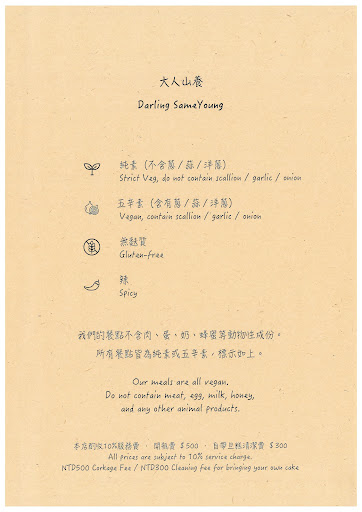 大人山養
Darling SameYoung
純素 (不含蔥/蒜/洋蔥)
Strict Veg, do not contain scallion / garlic / onion
五辛素 (含有蔥/蒜/洋蔥)
Vegan, contain scallion / garlic / onion
無麩質
Gluten-free
辣
Spicy
我們的餐點不含肉、蛋、奶、蜂蜜等動物性成份。
所有餐點皆為純素或五辛素，標示如上。
Our meals are all vegan.
Do not contain meat, egg, milk, honey,
and any other animal products.
本店酌收10%服務費 · 開瓶費 $500 · 自帶蛋糕清潔費 $300
All prices are subject to 10% service charge.
NTD500 Corkage Fee / NTD300 Cleaning fee for bringing your own cake